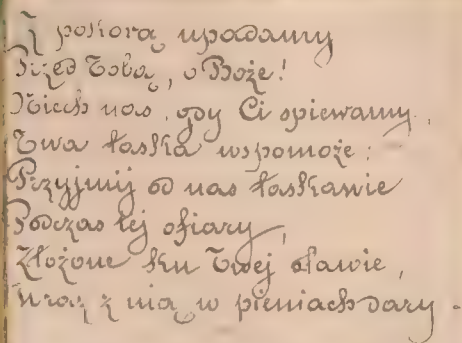 Z pokorą upadamy
Przed Tobą, o Boże!
Niech nas, gdy Ci śpiewamy,
Twa łaska wspomoże:
Przyjmij od nas łaskawie
Podczas tej ofiary,
Złożone ku Twej sławie,
Wraz z nią w pieniach dary.